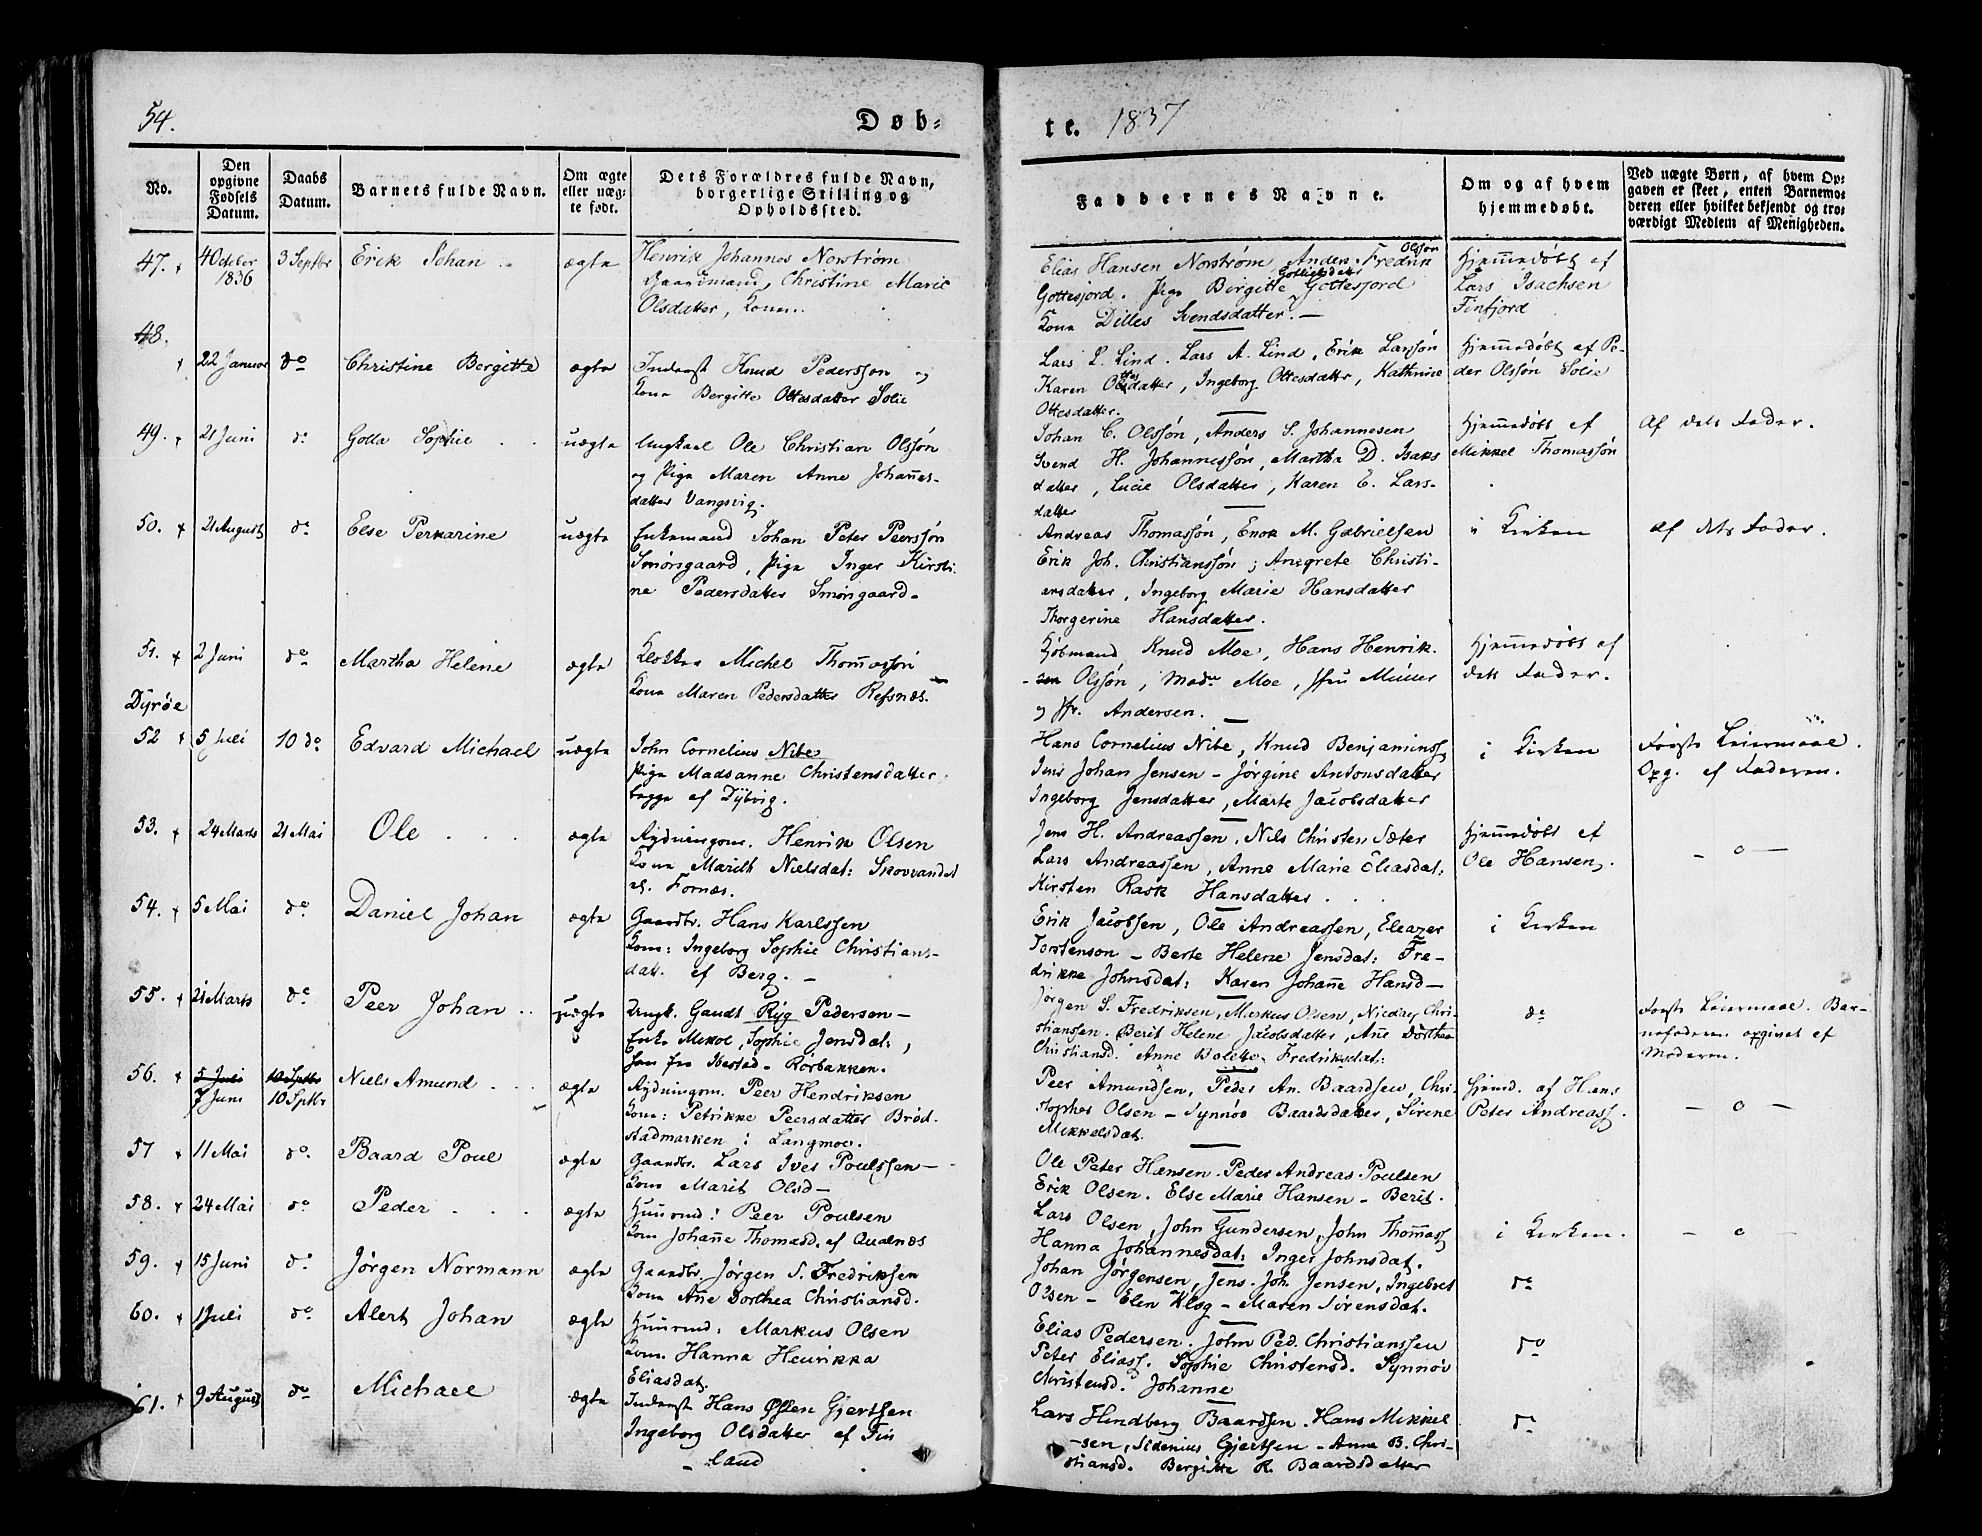 54.
Døb-
te. 1837
No.
Den opgivne Fødsels Datum.
Daabs Datum.
Barnets fulde Navn.
Om ægte eller uæg- te født.
Dets Forældres fulde Navn, borgerlige Stilling og Opholdssted.
Faddernes Navne.
Om og af hvem hjemmedøbt.
Ved uægte Børn, af hvem Op- gaven er skeet, enten Barnemo- deren eller hvilket bekjendt og tro- værdigt Medlem af Menigheden.
47. 4 October 1836 3 Septbr Erik Johan ægte
Henrik Johannes Norstrøm
Gaardmand, Christine Marie
Olsdatter, Kone.
Elias Hansen Norstrøm, Anders Fredrik Olsson
Gottesjord. Pige Birgitte Gottliebsdatter Gottesjord
Kone Dilles Svendsdatter. —
Hjemmedøbt af
Lars Isachsen
Finfjord
48. 22 Januar do Christine Bergitte ægte
Inderst Knud Pedersson og
Kone Bergitte Ottesdatter Solie
Lars L. Lind. Lars A. Lind, Erik Larssön
Karen Ottesdatter, Ingeborg Ottesdatter, Kathrine
Ottesdatter.
Hjemmedøbt af Pe-
der Olssön Solie
49. 21 Juni do Golla Sophie uægte
Ungkael Ole Christian Olssön
og Pige Maren Anne Johannes-
datter Vangsvig.
Johan C. Olssön, Anders S. Johannesen
Svend H. Johannessön, Martha D. Isaks
datter, Lucie Olsdatter, Karen E. Lars-
datter
Hjemmedøbt af
Mikkel Thomassön
Af dets Fader.
50. 21 August do Else Perkarine uægte
Enkemand Johan Peter Peerssön
Smörsgaard, Pige Inger Kirsti-
ne Pedersdatter Smörsgaard.
Andreas Thomassön, Enok M. Gabrielsen
Erik Joh. Christianssön; Anegrete Christi-
ansdatter, Ingeborg Marie Hansdatter
Thorgerine Hansdatter.
i Kirken
af dets Fader.
51. 2 Juni do Martha Helene ægte
Klokker Michel Thomassön
Kone Maren Pedersdatter Refsnæs.
Kjöbmand Knud Moe, Hans Henrik
Olssön, Made Moe, Müller
og Jfr. Andersen.
Hjemmedøbt af
dets Fader.
Dyröe
52 5 Juli 10 do Edvard Michael uægte
John Cornelius Nibe
Pige Madsanne Christensdatter
begge af Dybvig.
Hans Cornelius Nibe, Knud Benjaminss
Jens Johan Jensen - Jørgine Antonsdatter
Ingeborg Jensdatter, Marte Jacobsdatter
i Kirken
Første Leiermaal.
Opg. af Faderen.
53. 24 Marts 21 Mai Ole ægte
Rydningsm. Henrik Olsen
Kone Marith Nielsdat: Skovvandet
Fornæs.
Jens H. Andreassen, Nils Christen Sæter
Lars Andreassen, Anne Marie Eliasdat:
Kirsten Rask Hansdatter
Hjemmedøbt af
Ole Hansen,
— o —
54. 5 Mai do Daniel Johan ægte
Gaardbr. Hans Karlssen
Kone: Ingeborg Sophie Christians-
datt. af Berg. —
Erik Jacobsen, Ole Andreassen, Eleazer
Torstenson — Berte Helene Jensdat: Fre-
drikke Johnsdat: Karen Johanne Hansd—
i Kirken
55. 21 Marts do Peer Johan uægte
Ungk. Gaudt Ryg Pedersen —
Enke Mikol, Sophie Jensdat:,
han fra Ibestad - Rörbakken.
Jørgen S. Fredriksen, Markus Olsen, Nicolay Chri-
stianssen. Berit Helene Jacobsdatter, Ane Dorthea
Christiansd. Anne Bolette Fredriksdat:
do
Første Leiermaal. Bar-
nefaderen opgivet af
Moderen.
56. 5 Juli 10 Septbr
7 Juni 10 Septbr Niels Amund ægte
Rydningsm. Peer Hendriksen
Kone: Petrikke Peersdatter Bröd-
stadmarken i Langmoe.
Peer Amundsen, Peder An. Baardsen, Chri-
stopher Olsen — Synnöv Baardsdatter, Sirene
Mikkelsdat.
Hjemd. af Hans
Peter Andreass.
— o —
57 11 Mai do. Baard Poul ægte
Gaardbr. Lars Iver Poulssen —
Kone Marit Olsd—
Ole Peter Hansen. Peder Andreas Poulsen
Erik Olsen. Else Marie Hansen — Berit.
58. 24 Mai do Peder ægte
Huusmd: Peer Poulsen
Kone Johanne Thomasd. af Qualnæs
Lars Olsen, John Gundersen, John Thomass
Hanna Johannesdat: Inger Johnsdat.
i Kirken.
— o —
59. 15 Juni do Jørgen Normann ægte
Gaardbr. Jørgen S. Fredriksen
Kone Ane Dorthea Christiansd.
Johan Jørgensen, Jens Joh. Jensen, Ingebret
Olsen — Elen Klog — Maren Sørensdat.
do
60. 1 Juli do Alert Johan ægte
Huusmd: Markus Olsen
Kone. Hanna Henrikka
Eliasdat.
Elias Pedersen. John Ped. Christianssen
Peter Eliass. Sophie Christensd. Synnöv
Christensd. Johanne
do
61. 9 August do Michael ægte
Inderst Hans Østen Gjertsen
Ingeborg Olsdatter af Fin
land
Lars Hindberg Baardsen. Hans Mikkel
sen, Sidenius Gjertsen — Anne B. Chri-
stiansd. Bergitte K. Baardsdatter
do